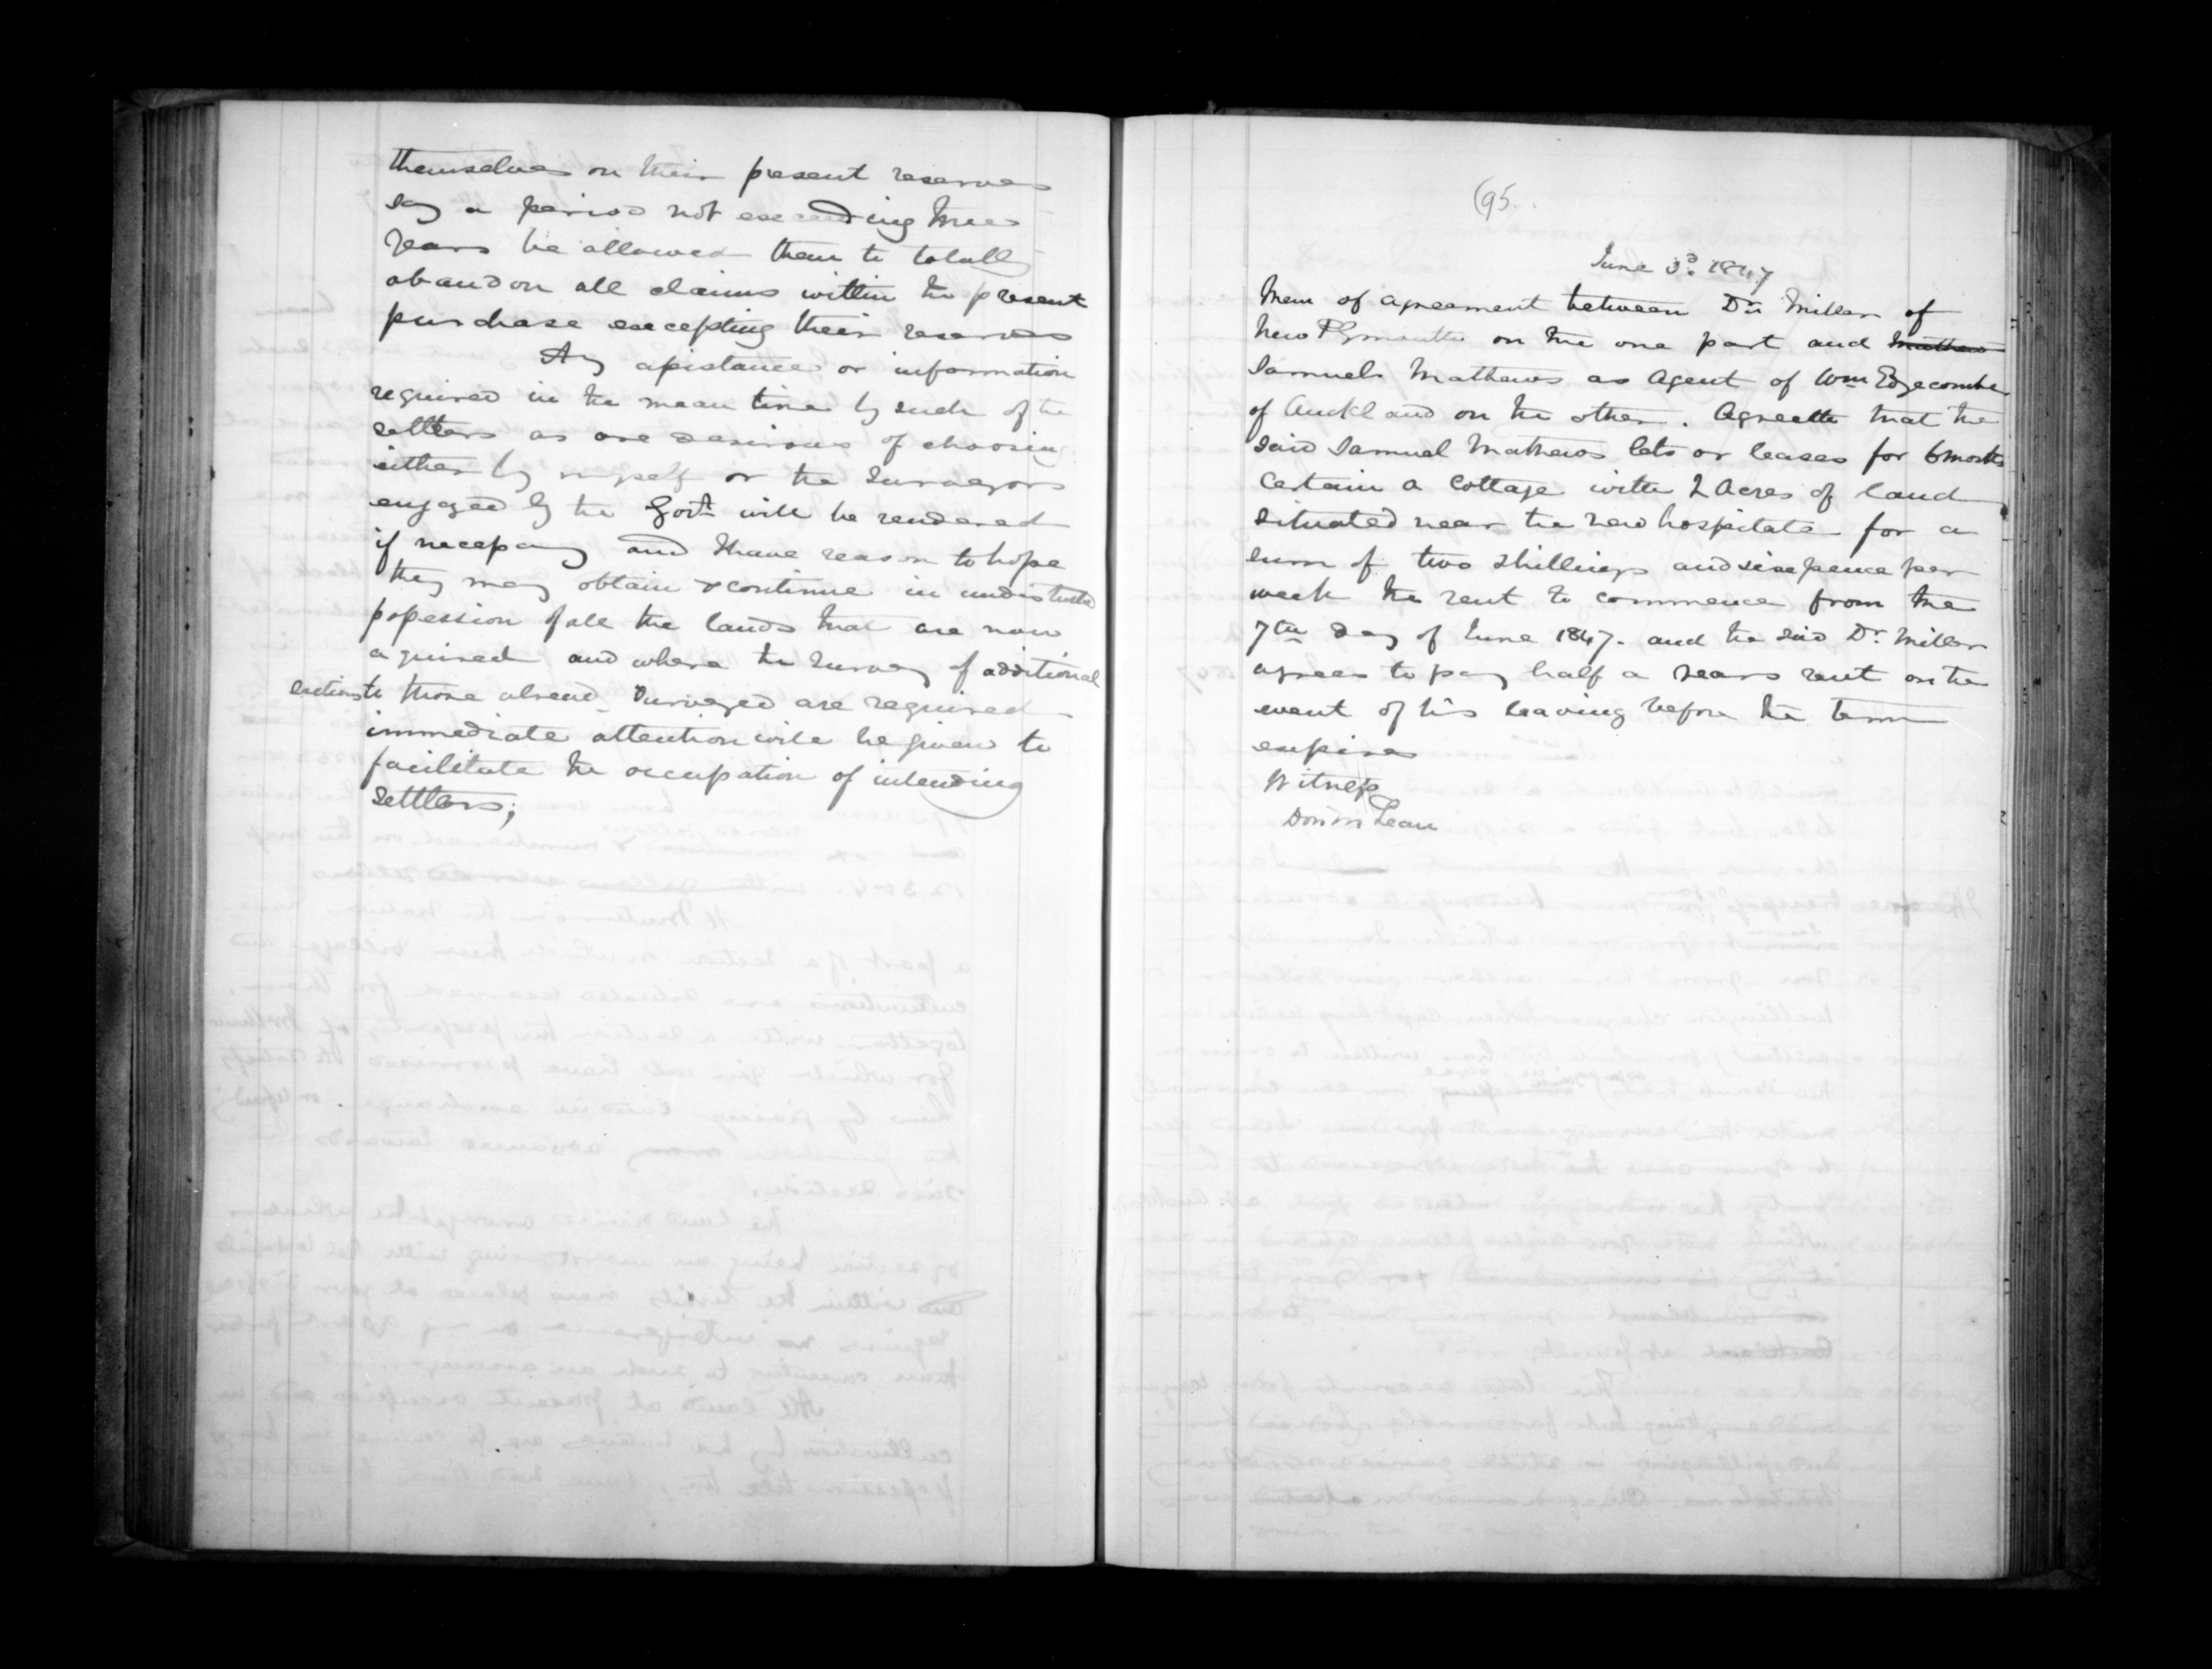 themselves on their present reserves
say a period not exceeding three
years be allowed them to totally
abandon all claims within the present
purchase excepting their reserves
Any assistance or information
required in the mean time by such of the
settlers as are desirous of choosing
either by myself or the Surveyors
engaged by the Govt. will be rendered
if necessary and I have reason to hope
they may obtain & continue in undisturbed
possession of all the lands that are now
acquired and where the survey of additional
sections to those already surveyed are required
immediate attention will be given to
facilitate the occupation of intending
settlers;
(95.
June 3d. 1847
Mem of agreement between Dr. Miller of
New Plymouth on the one part and Mathews
Samuel Mathews as Agent of Wm Edgecombe
of Auckland on the other. Agreeth that the
said Samuel Mathews lets or leases for 6 months
certain a Cottage with 2 Acres of land
situated near the new hospital for a
sum of two shillings and sixpence per
week the rent to commence from the
7th day of June 1847. and the said Dr. Miller
agrees to pay half a years rent on the
event of his leaving before the term
expires
Witness
Don McLean